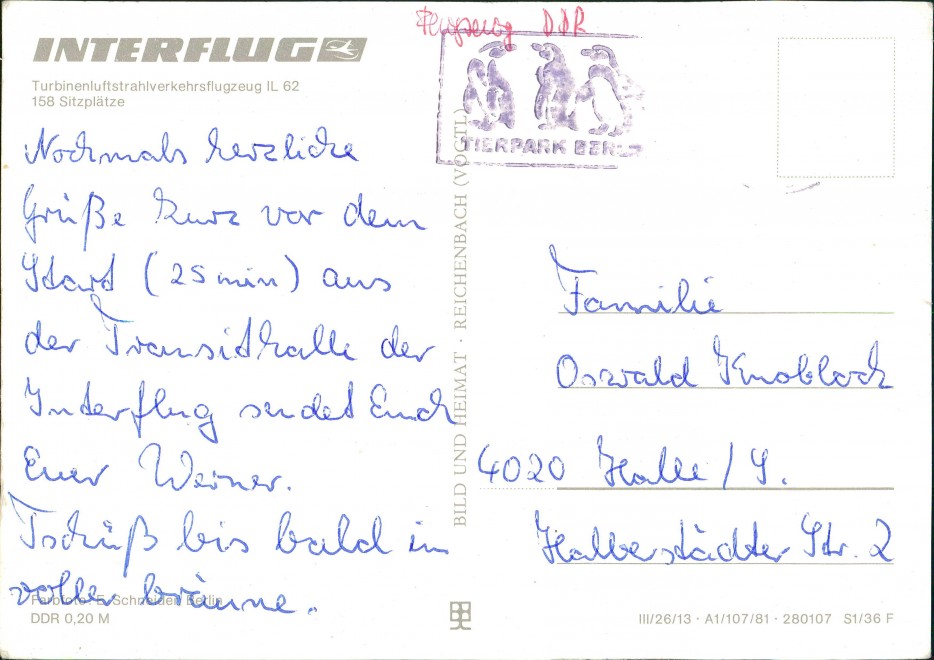 Flugzeug DDR
INTERFLUG
Turbinenluftstrahlverkehrsflugzeug IL 62
158 Sitzplätze
TIERPARK BERLIN
Nochmals herzliche
Grüße kurz vor dem
Start (25 min) aus
der Transithalle der
Interflug sendet Euch
Euer Werner.
Tschüß bis bald in
voller bräune.
Farbfoto: E. Schneider, Berlin
DDR 0,20 M
BILD UND HEIMAT · REICHENBACH (VOGTL)
Familie
Oswald Knobloch
4020 Halle / S.
Halberstädter Str. 2
III/26/13 · A1/107/81 · 280107 S1/36 F